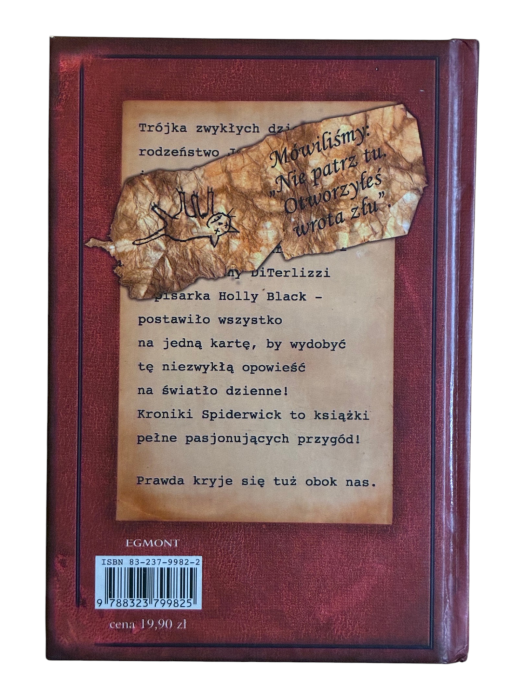 Trójka zwykłych
rodzeństwo
Mówiliśmy:
„Nie patrz tu.
Otworzyłeś
wrota złu”.
DiTerlizzi
pisarka Holly Black –
postawiło wszystko
na jedną kartę, by wydobyć
tę niezwykłą opowieść
na światło dzienne!
Kroniki Spiderwick to książki
pełne pasjonujących przygód!
Prawda kryje się tuż obok nas.
EGMONT
ISBN 83-237-9982-2
9 788323 799825
cena 19,90 zł